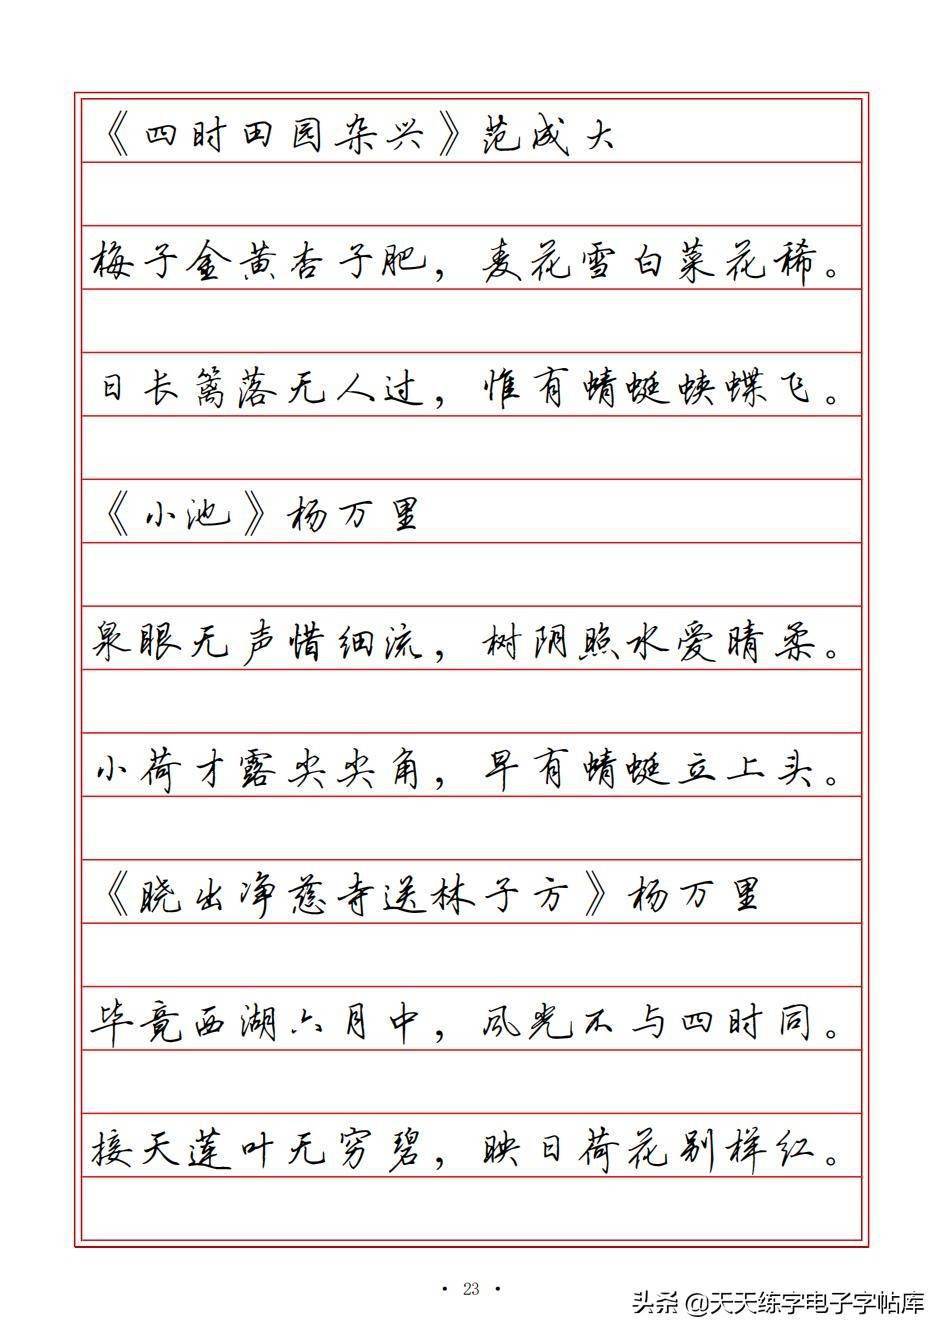 《四时田园杂兴》范成大
梅子金黄杏子肥，麦花雪白菜花稀。
日长篱落无人过，惟有蜻蜓蛱蝶飞。
《小池》杨万里
泉眼无声惜细流，树阴照水爱晴柔。
小荷才露尖尖角，早有蜻蜓立上头。
《晓出净慈寺送林子方》杨万里
毕竟西湖六月中，风光不与四时同。
接天莲叶无穷碧，映日荷花别样红。
· 23 ·
头条 @天天练字电子字帖库